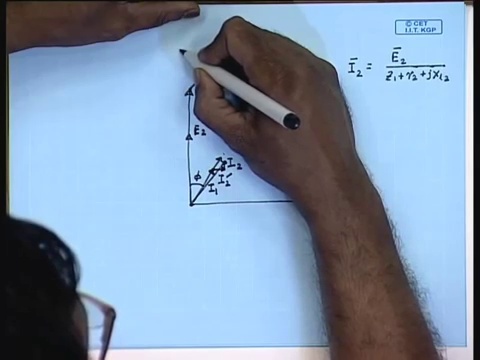 © CET
I.I.T. KGP
Ī₂ = Ē₂ / z₁ + r₂ + jx₁₂
E₂
φ
I₂
I₂'
I₁